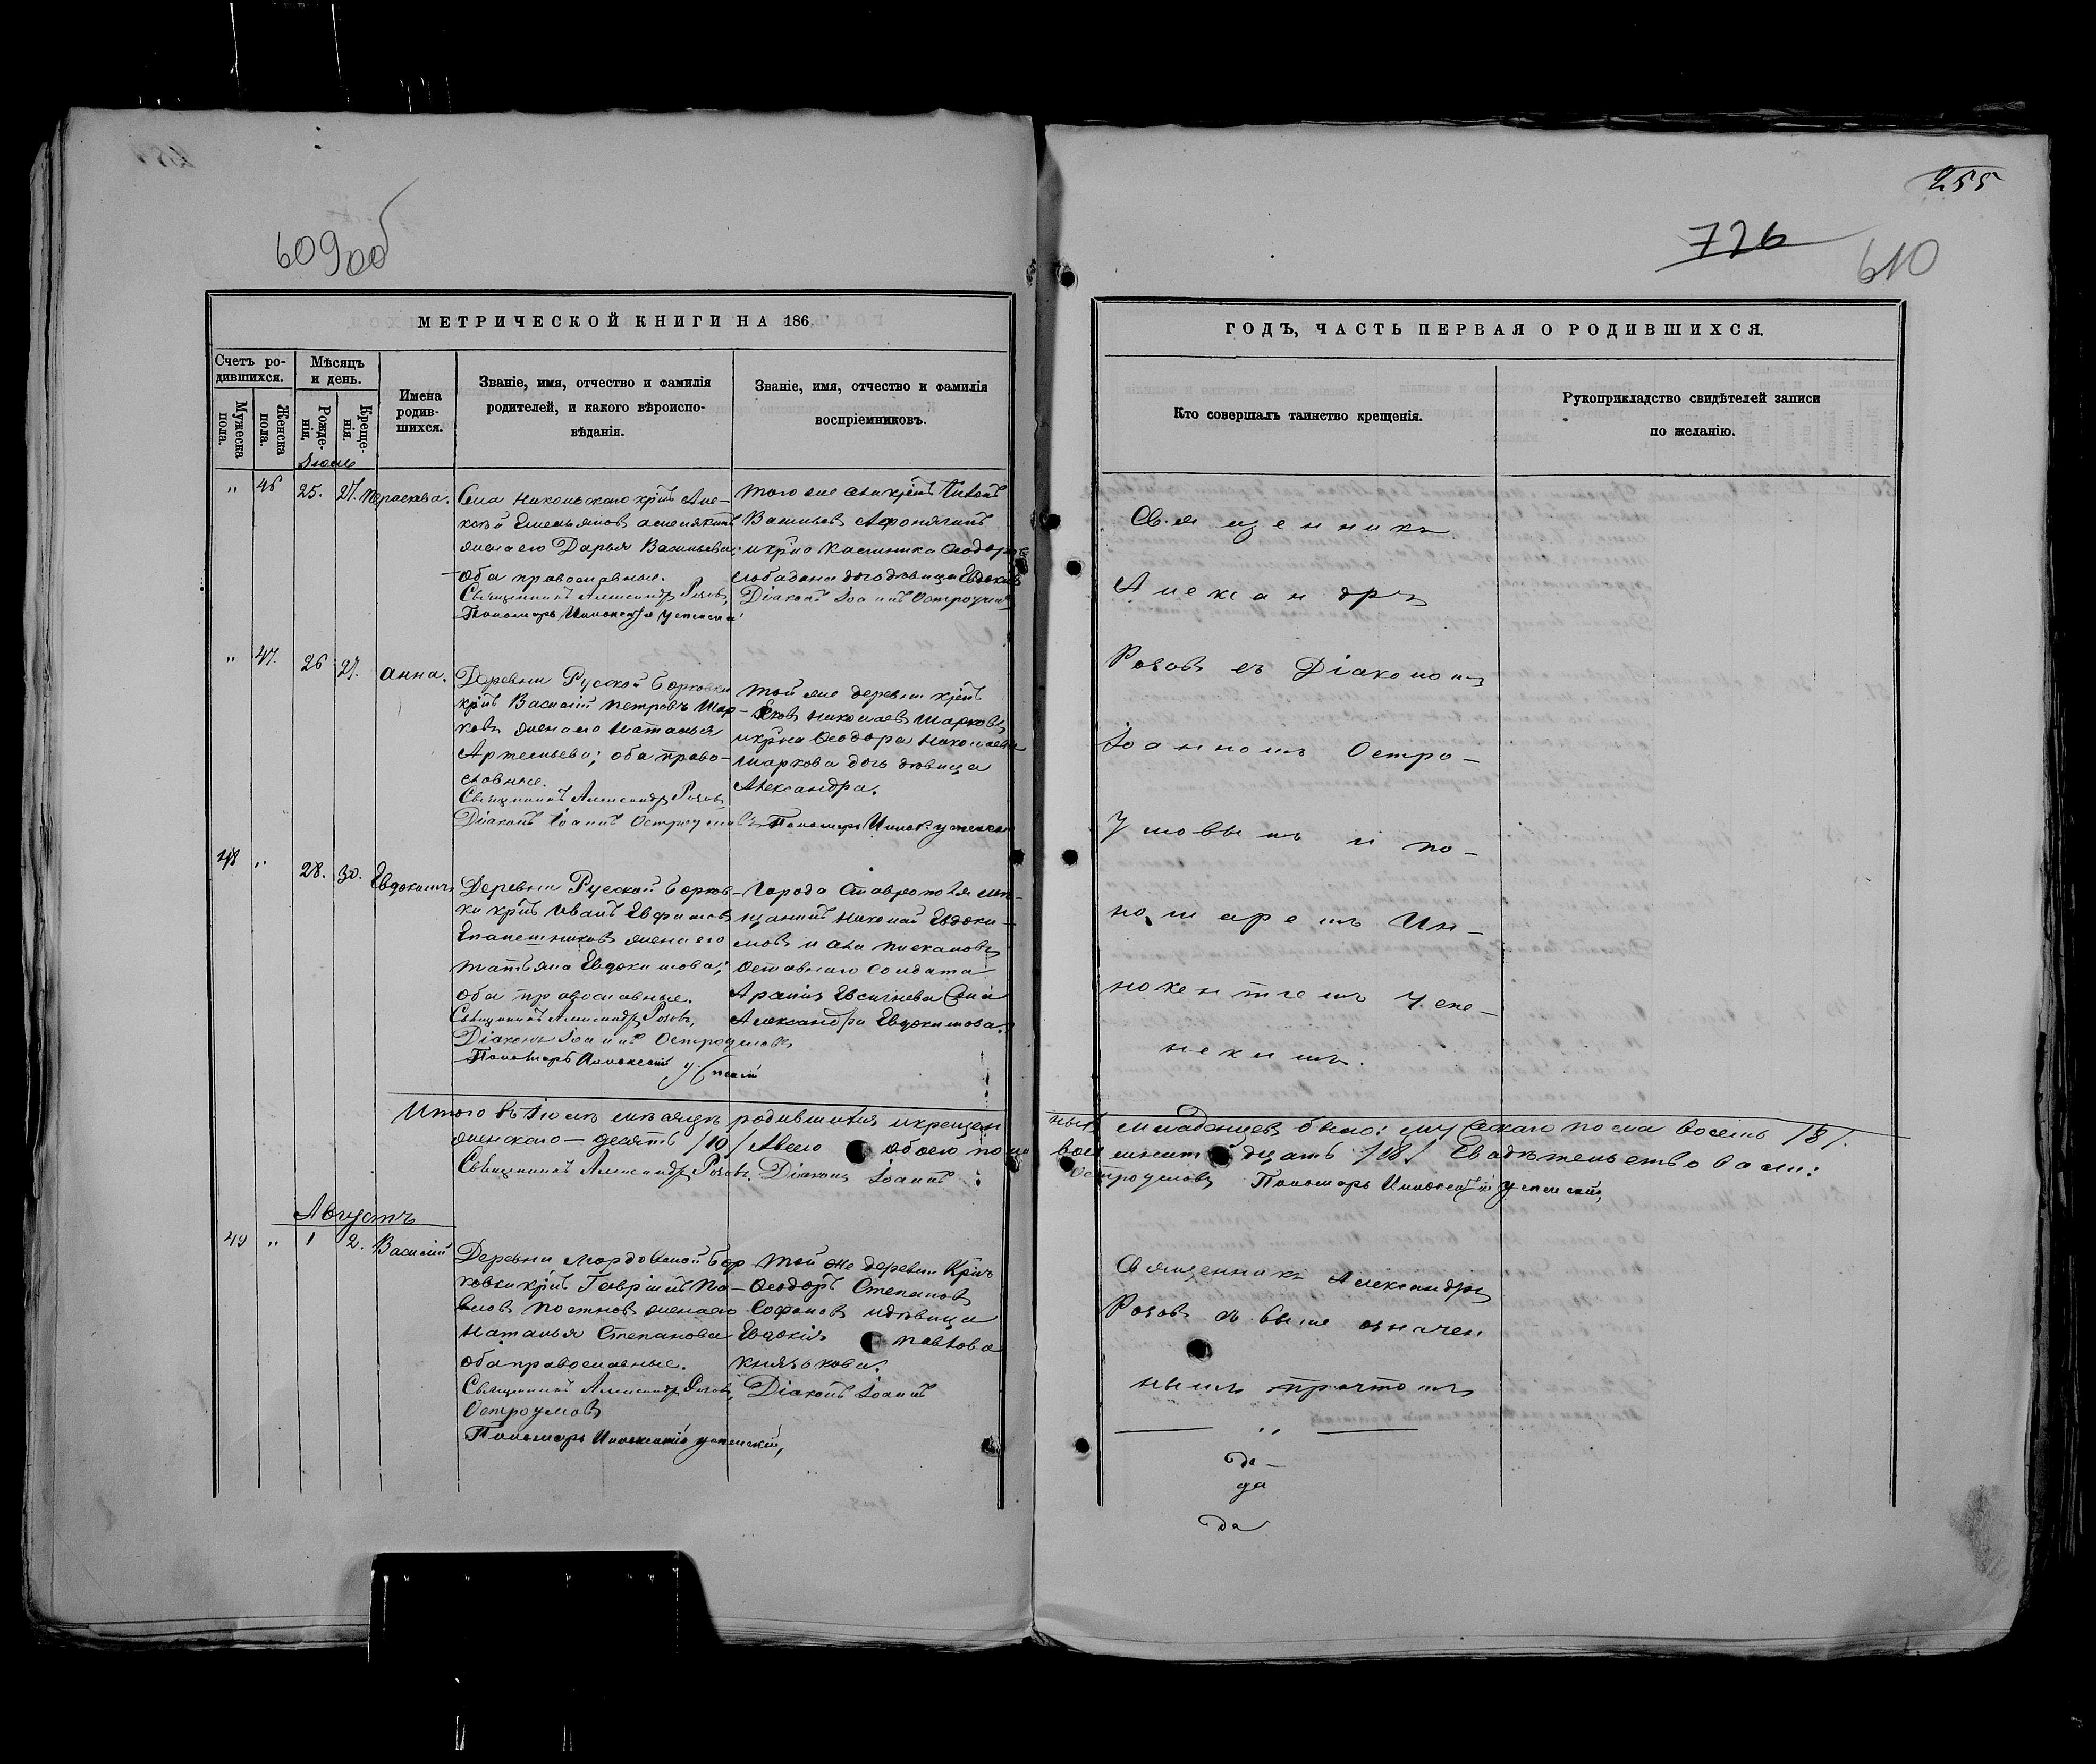 609 об
МЕТРИЧЕСКОЙ КНИГИ НА 186
Счетъ ро-
дившихся.
Мѣсяцъ
и день.
Мужеска
пола.
Женска
пола.
Рожде-
нія.
Креще-
нія.
Имена
родив-
шихся.
Званіе, имя, отчество и фамилія
родителей, и какого вѣроиспо-
вѣданія.
Званіе, имя, отчество и фамилія
воспріемниковъ.
Іюль
" 46 25. 27. Параскева.
Села Никольскаго крнъ Але-
ксѣй Емельяновъ
жена его Дарья Васильева;
оба православные.
Священникъ Александръ Розовъ,
Пономарь Иннокентій Успенскій
того же села крнъ Титъ
Васильевъ
икрна Калиника Ѳеодор
дочь дѣвица Евдокія
Діаконъ Іоаннъ Остроумовъ
" 47. 26 27. Анна.
Деревни Русской Борковки
крнъ Василій Петровъ Шар-
ковъ жена его Наталья
Артемьева; оба право-
славные.
Священникъ Александръ Розовъ
Діаконъ Іоаннъ Остроумовъ
той же деревни крнъ
Яковъ Николаевъ Шарковъ,
икрна Ѳеодора Николаева
Шаркова дочь дѣвица
Александра.
Пономарь Иннок. Успенскій
48 " 28. 30. Евдокимъ
Деревни Русской Борков-
ки крнъ Иванъ Евфимовъ
жена его
Татьяна Евдокимова;
оба православные.
Священникъ Александръ Розовъ,
Діаконъ Іоаннъ Остроумовъ
Пономарь Иннокентій Успенскій
Города Ставрополя мѣ-
щанинъ Николай Евдоки-
мовъ и
Отставнаго солдата
Александра Евдокимова.
Итого въ Іюлѣ мѣсяцѣ родившихся икрещен
женскаго — десять /10/ Авсего обоего пола
Священникъ Александръ Розовъ, Діаконъ Іоаннъ
Августъ
49 " 1 2. Василій
Деревни Мордовской Бор
ковки крнъ Гавріилъ Па-
вловъ Постновъ женаего
Наталья Степанова
оба православные.
Священникъ Александръ Розовъ,
Остроумовъ
Пономарь Иннокентій Успенскій,
Той же деревни Крнъ
Ѳеодоръ Степановъ
Софоновъ идѣвица
Евдокія Павлова
Князькова.
Діаконъ Іоаннъ
255
726
610
ГОДЪ, ЧАСТЬ ПЕРВАЯ О РОДИВШИХСЯ.
Кто совершалъ таинство крещенія.
Рукоприкладство свидѣтелей записи
по желанію.
Священникъ
Александръ
Розовъ съ Діакономъ
Іоанномъ Остро-
умовымъ и по-
номаремъ Ин-
нокентіемъ Успе-
нскимъ.
ныхъ младенцевъ было: мужескаго пола восемь /8/.
восемнатдцать /18/ Свидѣтельствовали:
Остроумовъ Пономарь Иннокентій Успенскій,
Священникъ Александръ
Розовъ съ выше означен
нымъ причтомъ
"
да
да
да